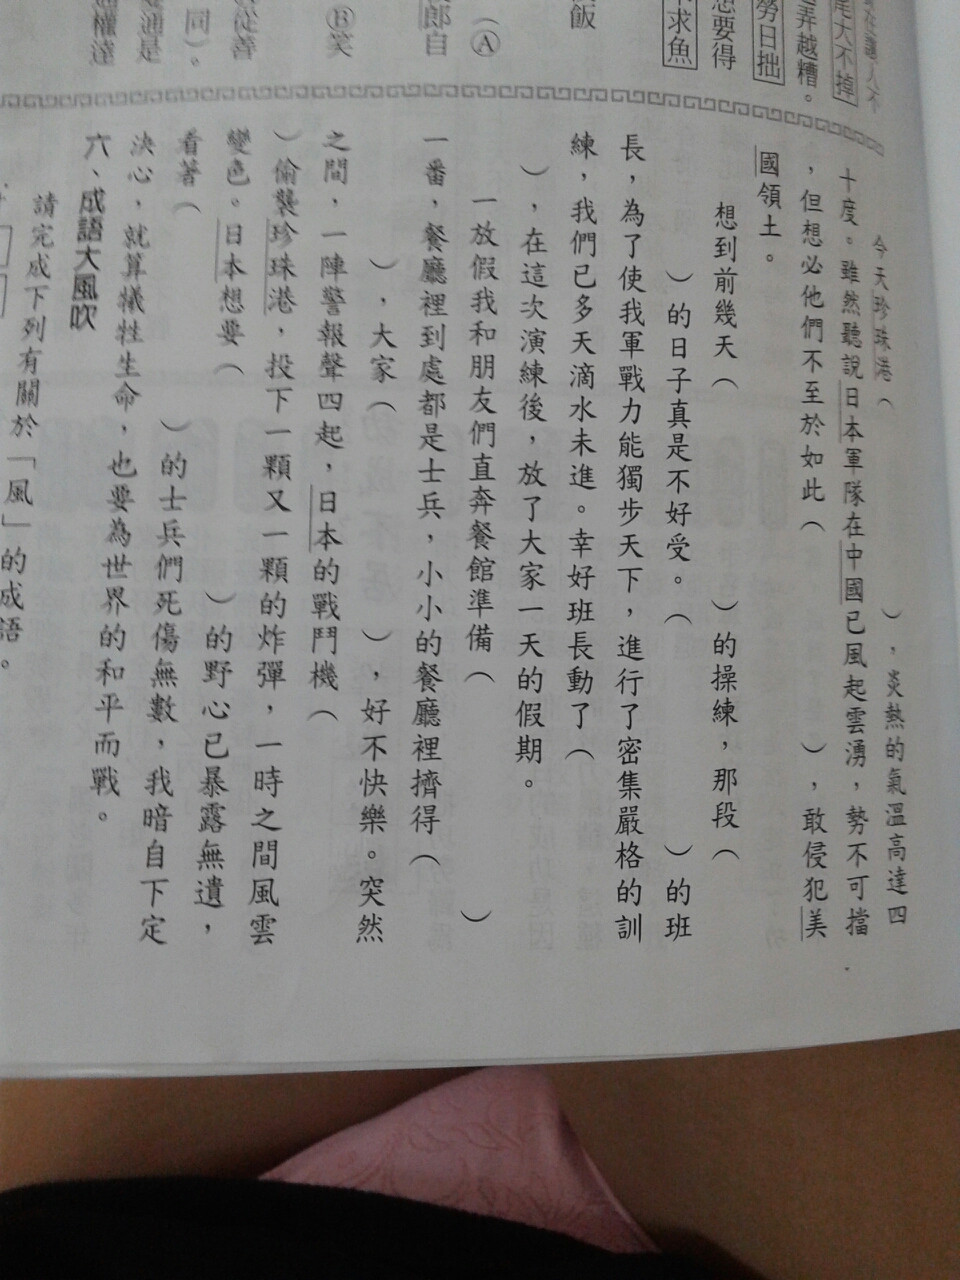 尾大不掉
弄越糟。
勞日拙
想要得
求魚
飯
Ⓐ
郎自
Ⓑ笑
從善
同)。
通是
權達
今天珍珠港(　　　),炎熱的氣溫高達四
十度。雖然聽說日本軍隊在中國已風起雲湧,勢不可擋
,但想必他們不至於如此(　　　),敢侵犯美
國領土。
想到前幾天(　　　)的操練,那段(
)的日子真是不好受。(　　　)的班
長,為了使我軍戰力能獨步天下,進行了密集嚴格的訓
練,我們已多天滴水未進。幸好班長動了(
),在這次演練後,放了大家一天的假期。
一放假我和朋友們直奔餐館準備(　　　)
一番,餐廳裡到處都是士兵,小小的餐廳裡擠得(
),大家(　　　),好不快樂。突然
之間,一陣警報聲四起,日本的戰鬥機(
)偷襲珍珠港,投下一顆又一顆的炸彈,一時之間風雲
變色。日本想要(　　　)的野心已暴露無遺,
看著(　　　)的士兵們死傷無數,我暗自下定
決心,就算犧牲生命,也要為世界的和平而戰。
六、成語大風吹
請完成下列有關於「風」的成語。